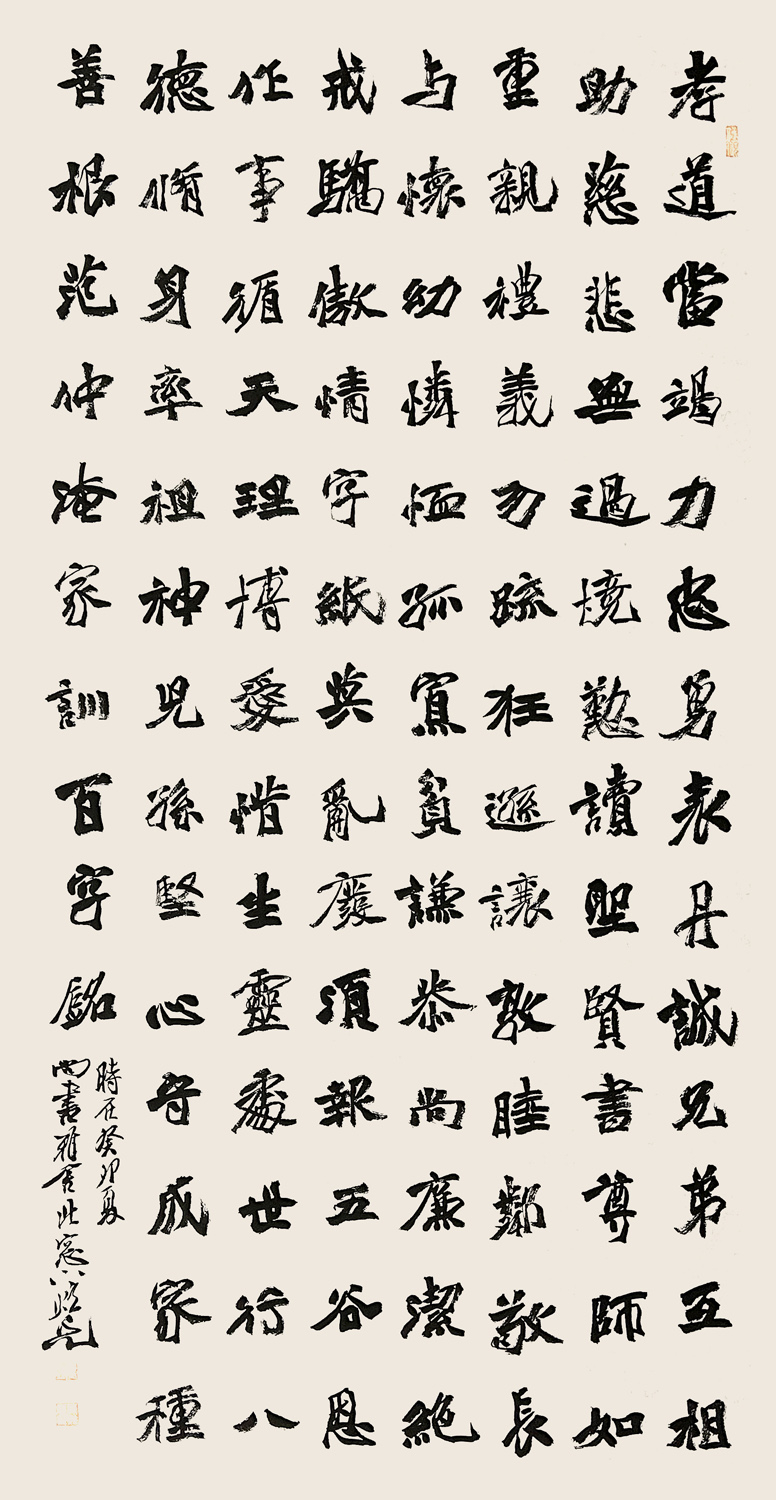 孝道當竭力忠勇表丹誠兄弟互相
助慈悲無過境勤讀聖賢書尊師如
重親禮義勿疏狂遜讓敦睦鄰敬長
与懷幼憐恤孤寡貧謙恭尚廉潔絕
戒驕傲情字紙莫亂廢須報五谷恩
作事循天理博愛惜生靈處世行八
德脩身率祖神兒孫堅心守成家種
善根范仲淹家訓百字銘
時在癸卯夏